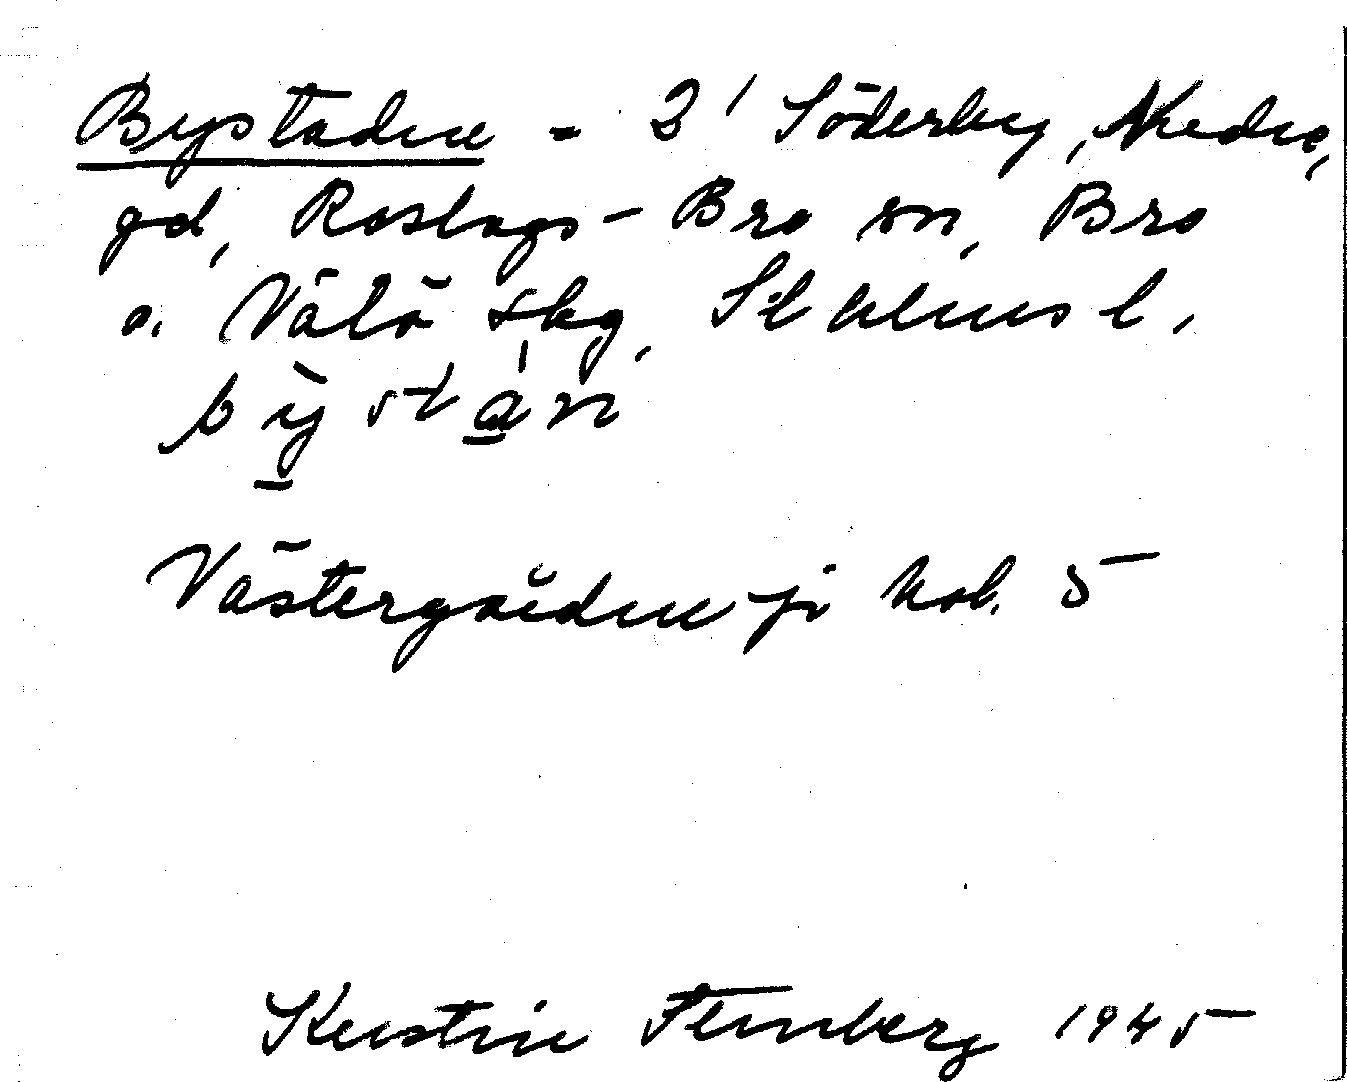 Bystaden - 2' Söderby, Nedre,
gd, Roslags-Bro sn, Bro
o. Vätö skg, Sthlms l.
bỳstán
Västergården på kob. 5
Kerstin Flemberg 1945